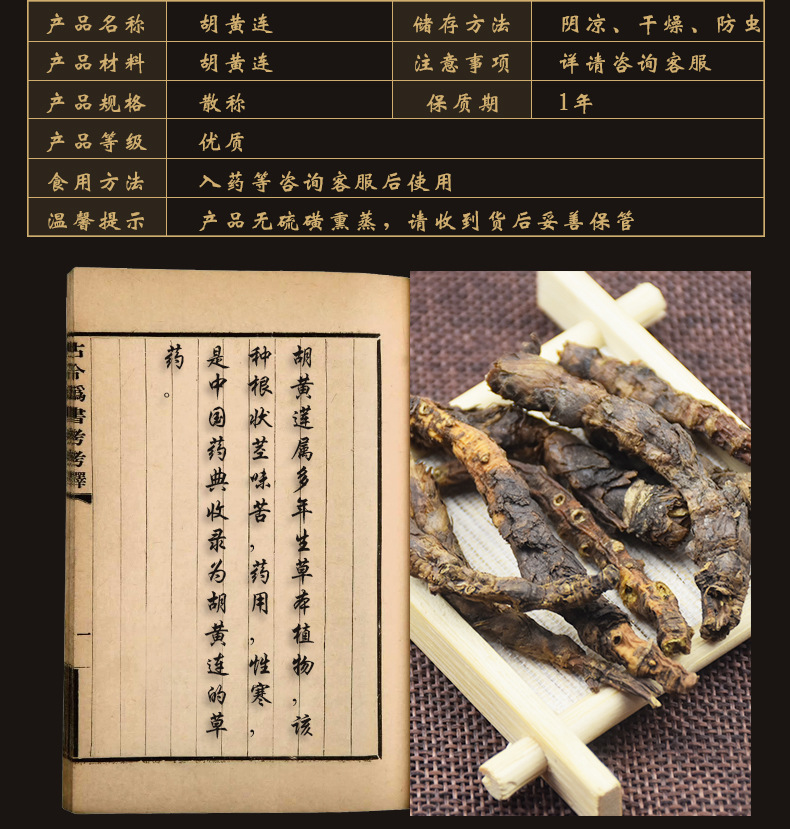 产品名称 胡黄连 储存方法 阴凉、干燥、防虫
产品材料 胡黄连 注意事项 详请咨询客服
产品规格 散称 保质期 1年
产品等级 优质
食用方法 入药等咨询客服后使用
温馨提示 产品无硫磺熏蒸，请收到货后妥善保管
胡黄莲属多年生草本植物，该
种根状茎味苦，药用，性寒，
是中国药典收录为胡黄连的草
药。
古今僞書考考釋
一